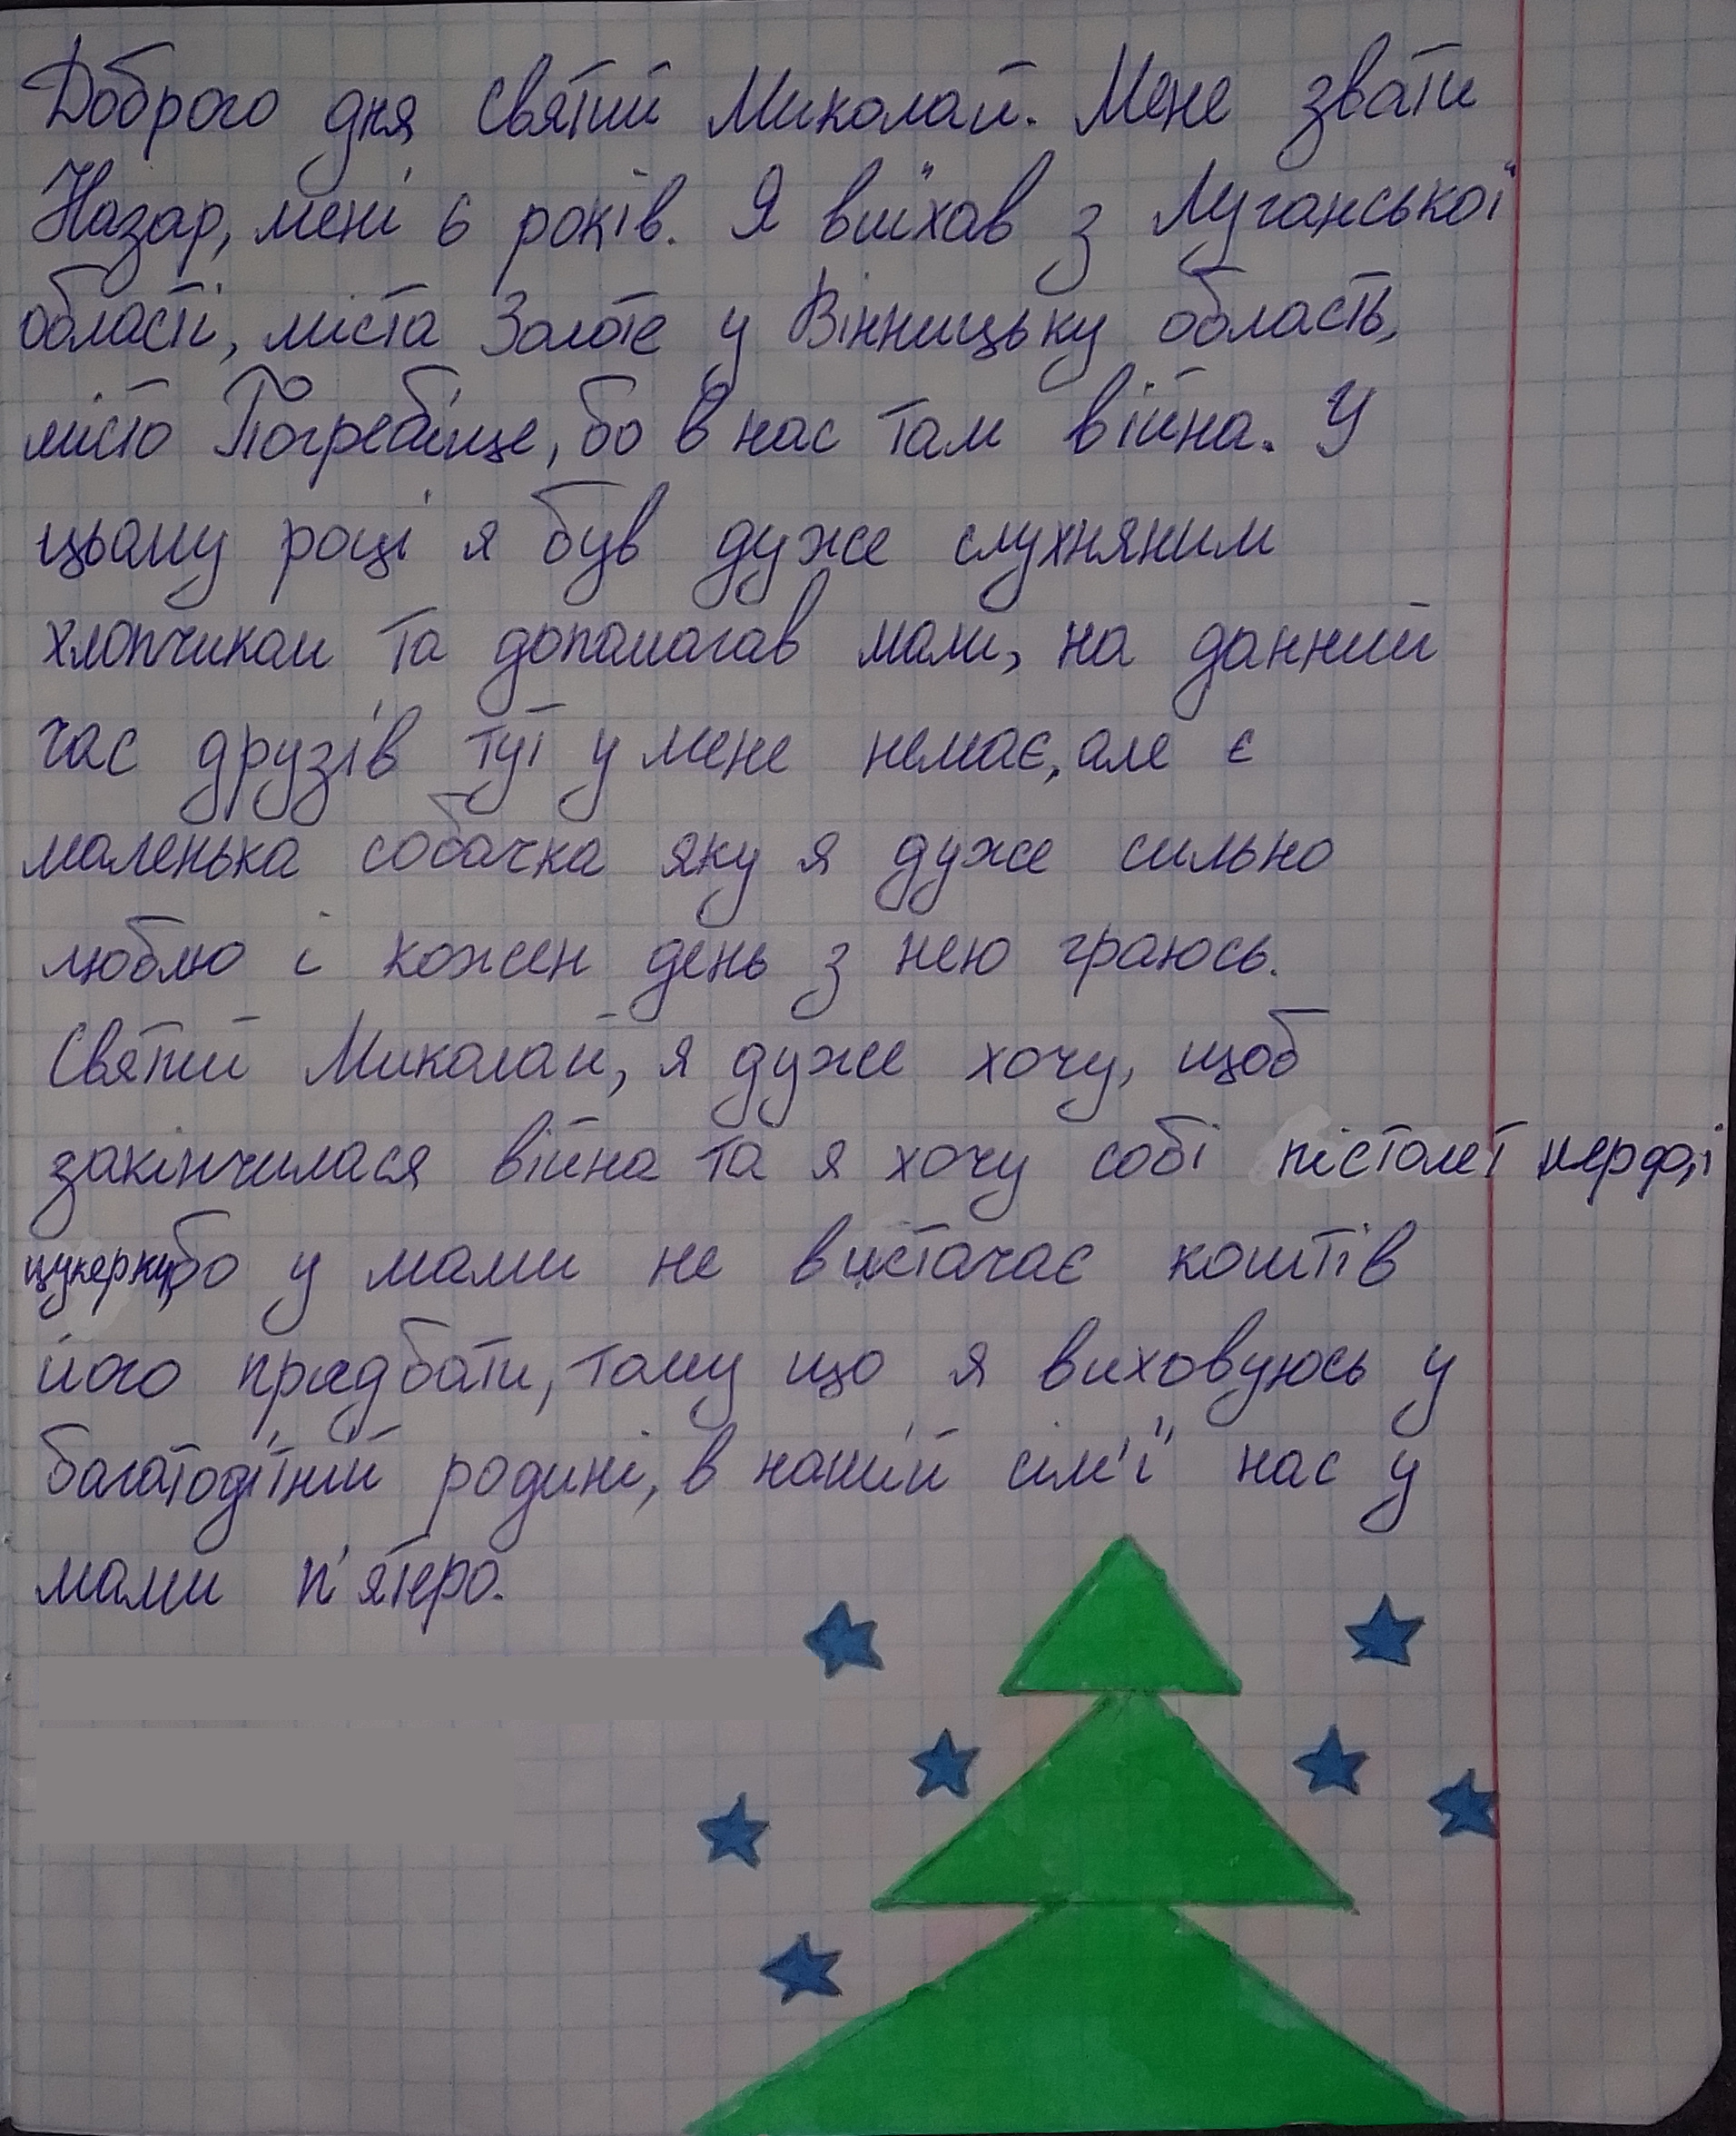 Доброго дня Святий Миколай. Мене звати
Назар, мені 6 років. Я виїхав з Луганської
області, міста Золоте у Вінницьку область,
місто Погребище, бо в нас там війна. У
цьому році я був дуже слухняним
хлопчиком та допомагав мами, на данний
час друзів тут у мене немає, але є
маленька собачка яку я дуже сильно
люблю і кожен день з нею граюсь.
Святий Миколай, я дуже хочу, щоб
закінчилася війна та я хочу собі пістолет нерф, і
цукерки, бо у мами не вистачає коштів
його придбати, тому що я виховуюсь у
багатодітній родині, в нашій сім'ї нас у
мами п'ятеро.